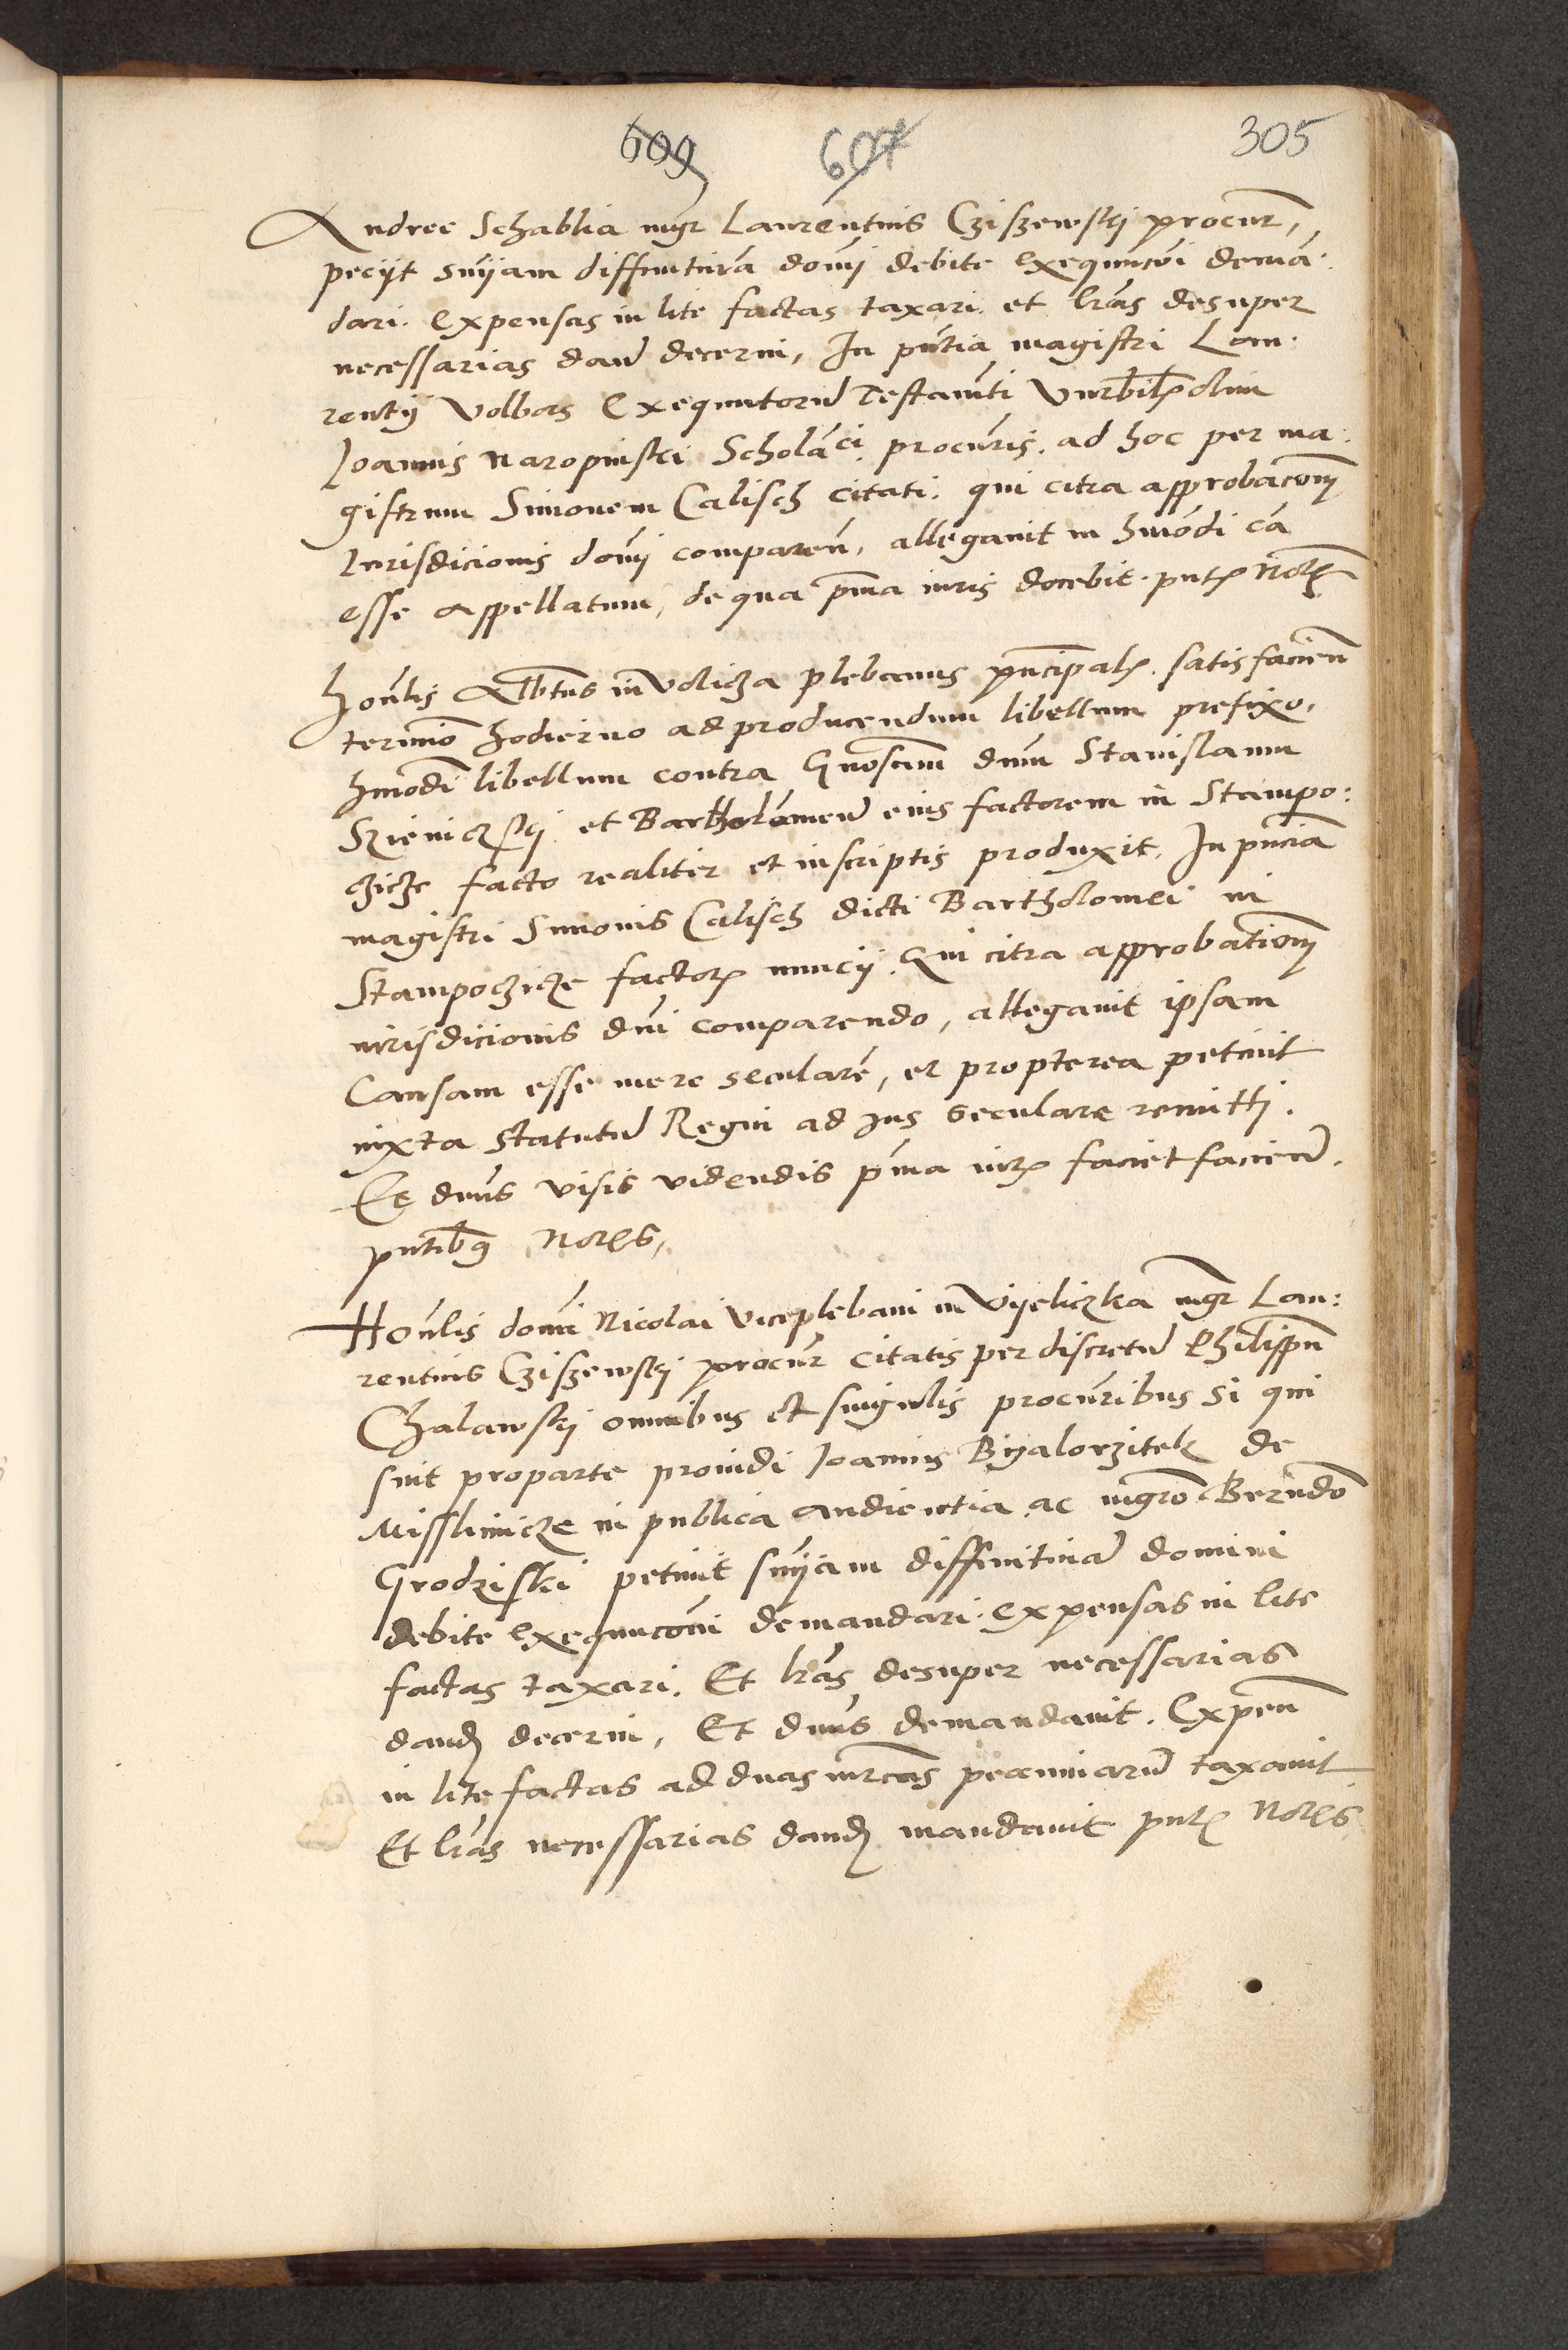 609 607 305
Andree Schablia mgr Laurentius Cziszewskij procur,
peciit snīam diffinitiuā domī debite exequucōi demā:
dari. expensas in lite factas taxari. et lrās desuper
necessarias dand decerni, In pn̄tia magistri Lau:
rentij Volbors Exequutorū Testamēti Vn̄rbil olim
Joannis Naropinski Scholāci procuris. ad hoc per ma:
gistrum Simonem Calisch citati: qui citra approbacōem
Jurisdicionis domī comparen̄, allegauit in hmōdi cā
esse appellatum, de qua p̄ma iuris docebit. pn̄t Not
Honlis Albtus in Volicza plebanus prīncipal. satisfacien̄
termīo hodierno ad producendum libellum prefixo,
hmōdi libellum contra Gnosum dnm Stanislaum
et Bartholomeū eius factorem in Stampo:
czicze facto realiter et in scriptis produxit. In pn̄cia
magistri Simonis Calisch dicti Bartholomei in
Stampoczicze factor nuncij. Qui citra approbationem
iurisdicionis dni comparendo, allegauit ipsam
Causam esse mere secularē, et propterea petiuit
iuxta Statutū Regni ad Jus seculare remitti.
Et dnus visis videndis p̄ma iur faciet faciend.
pn̄tibus Nores,
Honlis domī Nicolai viceplebani in Vyeliczka mgr Lau:
rentius Cziszewskij procur citatis per discretū Philippū
Chalawskij omnibus et singulis procūribus si qui
sint pro parte prouidi Joannis Byalorzitek de
Misslimicze in publica audientia ac mgro Bern̄do
Grodziski petiuit snīam diffinitiuā domini
debite exequucōni demandari. expensas in lite
factas taxari. Et lrās desuper necessarias
dand decerni, Et dnus demandauit. Expen̄
in lite factas ad duas mrcas pecuniarū taxauit
Et lrās necessarias dand mandauit pn̄t Nores